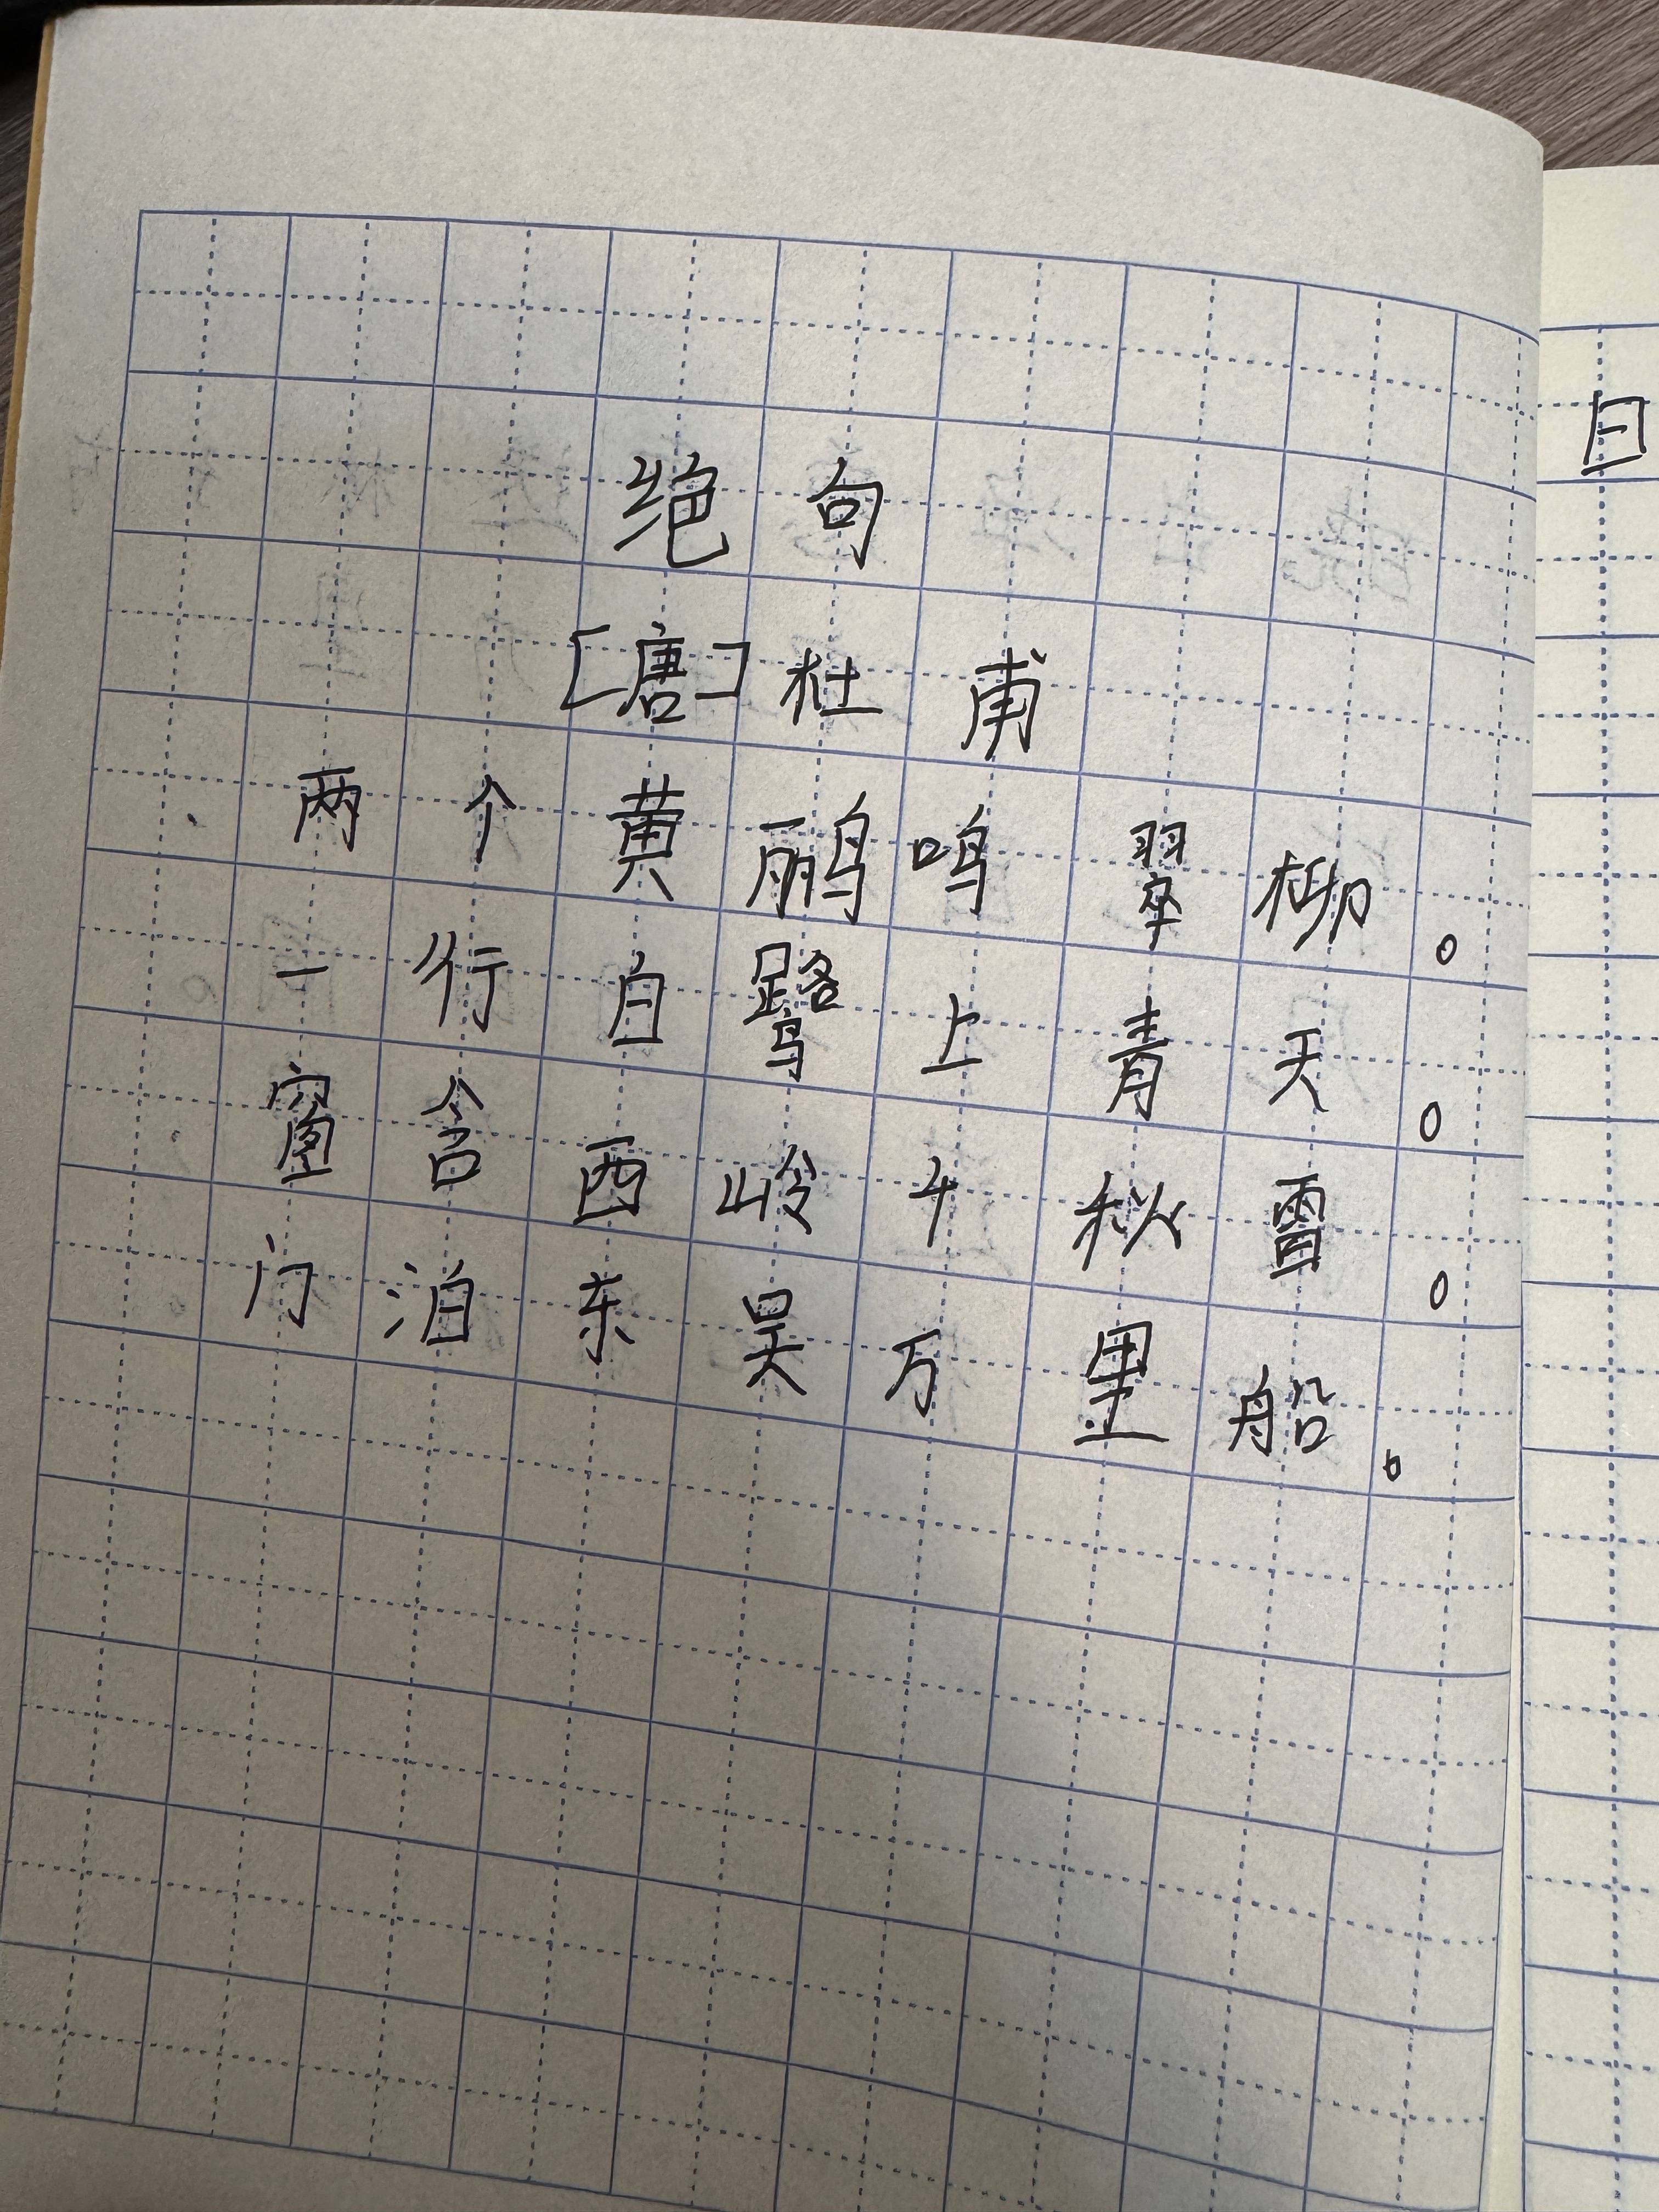 绝句
[唐]杜甫
两个黄鹂鸣翠柳。
一行白鹭上青天。
窗含西岭千秋雪。
门泊东吴万里船。
日